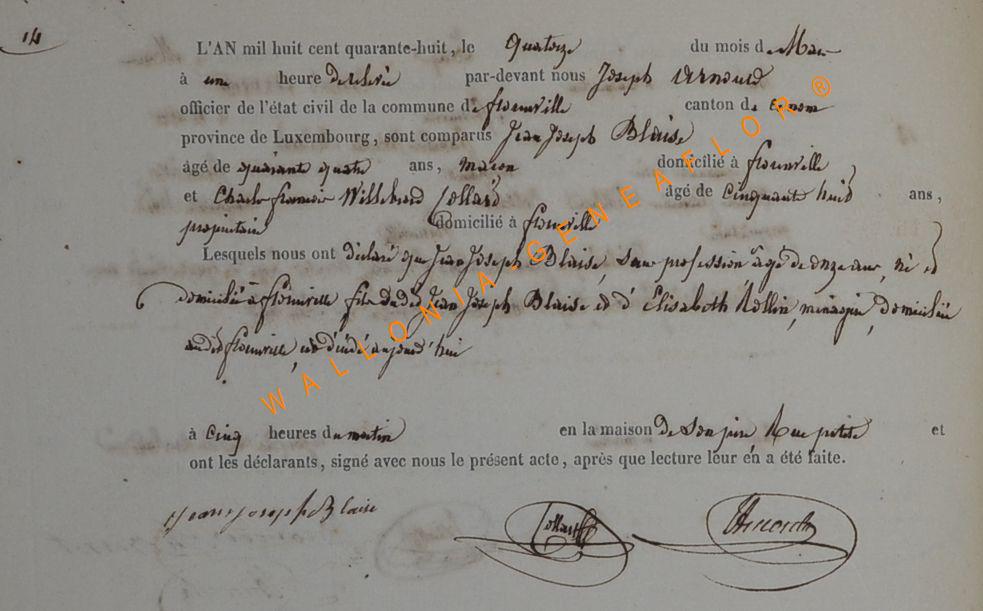 14
L'AN mil huit cent quarante-huit, le quatorze du mois de Mars
à une heure de relevée par-devant nous Joseph Arnould
officier de l'état civil de la commune de florenville canton de
province de Luxembourg, sont comparus Jean Joseph Blaise
âgé de quarante quatre ans, macon domicilié à florenville
et Charles françois Willebrord Collard âgé de cinquante huit ans,
propriétaire domicilié à florenville
Lesquels nous ont déclaré que Jean Joseph Blaise, sans profession âgé de onze ans, né et
domicilié à florenville fils dudit Jean Joseph Blaise et d'Elisabeth Rollin, ménagère, domiciliée
audit florenville, est décédé aujourd'hui
à cinq heures du matin en la maison de son père, Rue petite et
ont les déclarants, signé avec nous le présent acte, après que lecture leur en a été faite.
Jean joseph Blaise Collard
WALLONIA-GENEAFLOR®